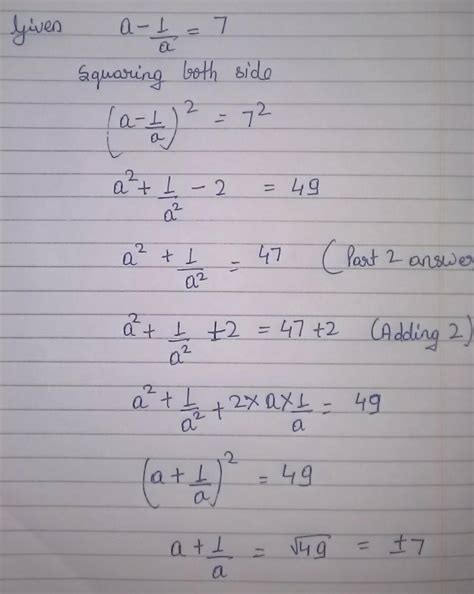 Given a - 1/a = 7
Squaring both side
(a - 1/a)² = 7²
a² + 1/a² - 2 = 49
a² + 1/a² = 47 (Part 2 answer
a² + 1/a² + 2 = 47 + 2 (Adding 2)
a² + 1/a² + 2 × a × 1/a = 49
(a + 1/a)² = 49
a + 1/a = √49 = ±7